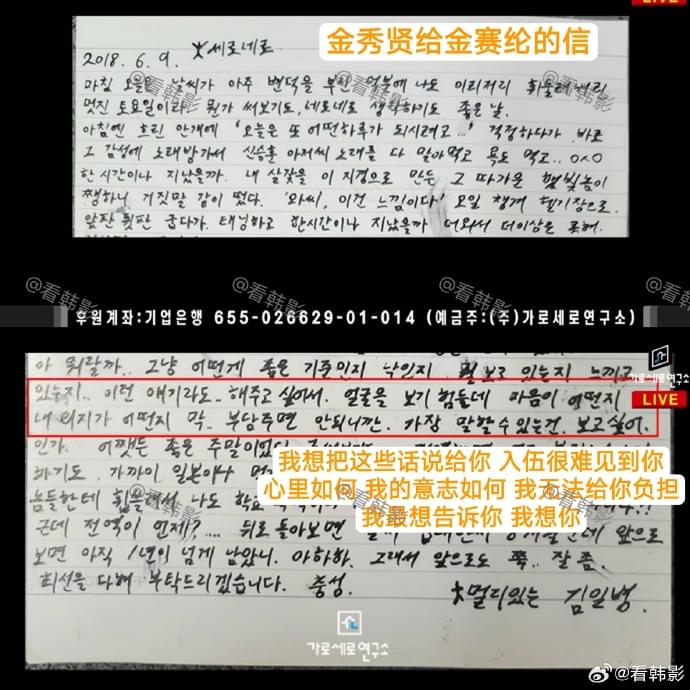 LIVE
金秀贤给金赛纶的信
2018. 6. 9. 세로네로
마침 오늘은 날씨가 아주 변덕을 부린 덕분에 나도 이리저리 휘둘려버린
멋진 토요일이라 뭔가 써보기도, 네로네로 생각하기도 좋은 날.
아침엔 흐린 안개에 '오늘은 또 어떤하루가 되시려고...' 걱정하다가 바로
그 감성에 노래방가서 신승훈 아저씨 노래를 다 말아먹고 욕도 먹고..
한시간이나 지났을까. 내 살갗을 이 지경으로 만든 그 따가운 햇빛놈이
쨍하니 거짓말 같이 떴다. '와씨, 이건 느낌이다' 요일 챙겨 헬기장으로.
앞판 뒷판 굽다가. 태닝하고 한시간이나 지났을까 더워서 더이상은 못해.
@看韩影
@看韩影
@看韩影
후원계좌:기업은행 655-026629-01-014 (예금주:(주)가로세로연구소)
가로세로연구소
LIVE
아 뭐랄까.. 그냥 어떻게 좋은 기준인지 낙인지 뭘 보고 있는지 느끼고
있는지.. 이런 얘기라도.. 해주고 싶어서. 얼굴을 보기 힘든데 마음이 어떤지
내 의지가 어떤지 막.. 부담주면 안되니깐. 가장 말할수있는건. 보고싶어.
인가. 어쨋든 좋은 주말이었다.
我想把这些话说给你 入伍很难见到你
하기도. 가까이 일본이나
心里如何 我的意志如何 我无法给你负担
놈들한테 휘둘려서 나도
我最想告诉你 我想你
근데 전역이 언제?.... 뒤로 돌아보면 앞으로
보면 아직 1년이 넘게 남았니. 아하하. 그래서 앞으로도 쭉.. 잘 좀.
최선을 다해 부탁드리겠습니다. 충성. 멀리있는 김일병.
가로세로연구소
@看韩影